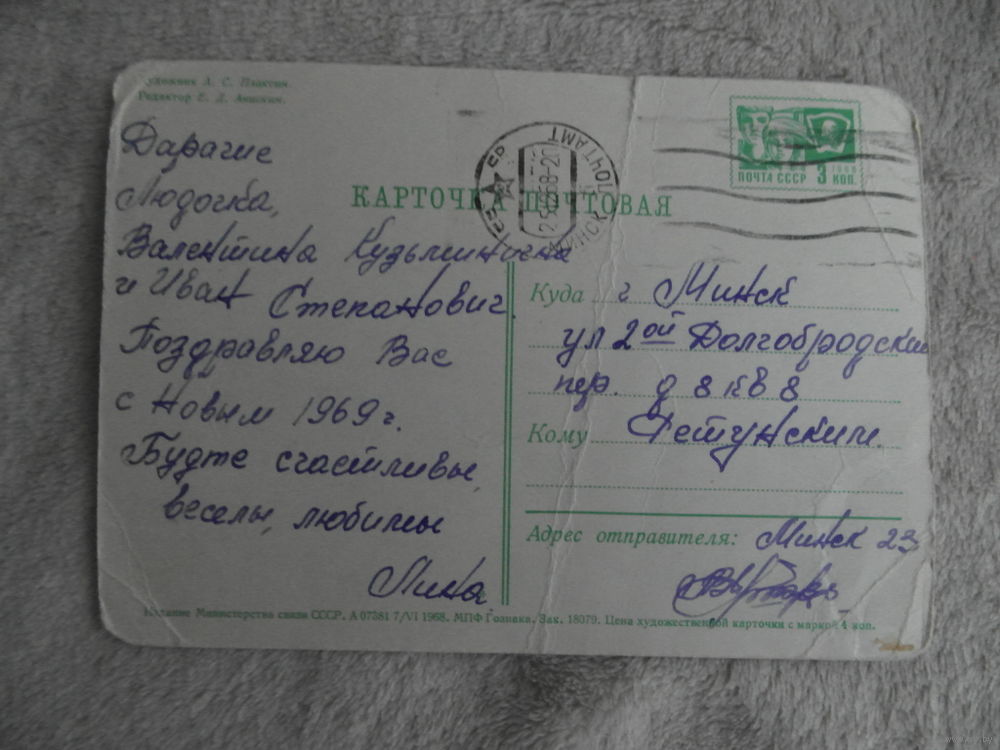 Художник А. С. Плаксин.
Редактор Е. Д. Анискин.
Дарагие
Людочка,
Валентина Кузьминична
и Иван Степанович.
Поздравляю Вас
с Новым 1969 г.
Будте счастливы,
веселы, любимы
Лина
КАРТОЧКА ПОЧТОВАЯ
МИНСК ПОЧТАМТ
ПОЧТА СССР 3 КОП.
Куда г Минск
ул 2ой Долгобродский
пер. д 8 кв 8
Кому Петунским
Адрес отправителя: Минск 23
Издание Министерства связи СССР. А 07381 7/VI 1968. МПФ Гознака. Зак. 18079. Цена художественной карточки с маркой 4 коп.